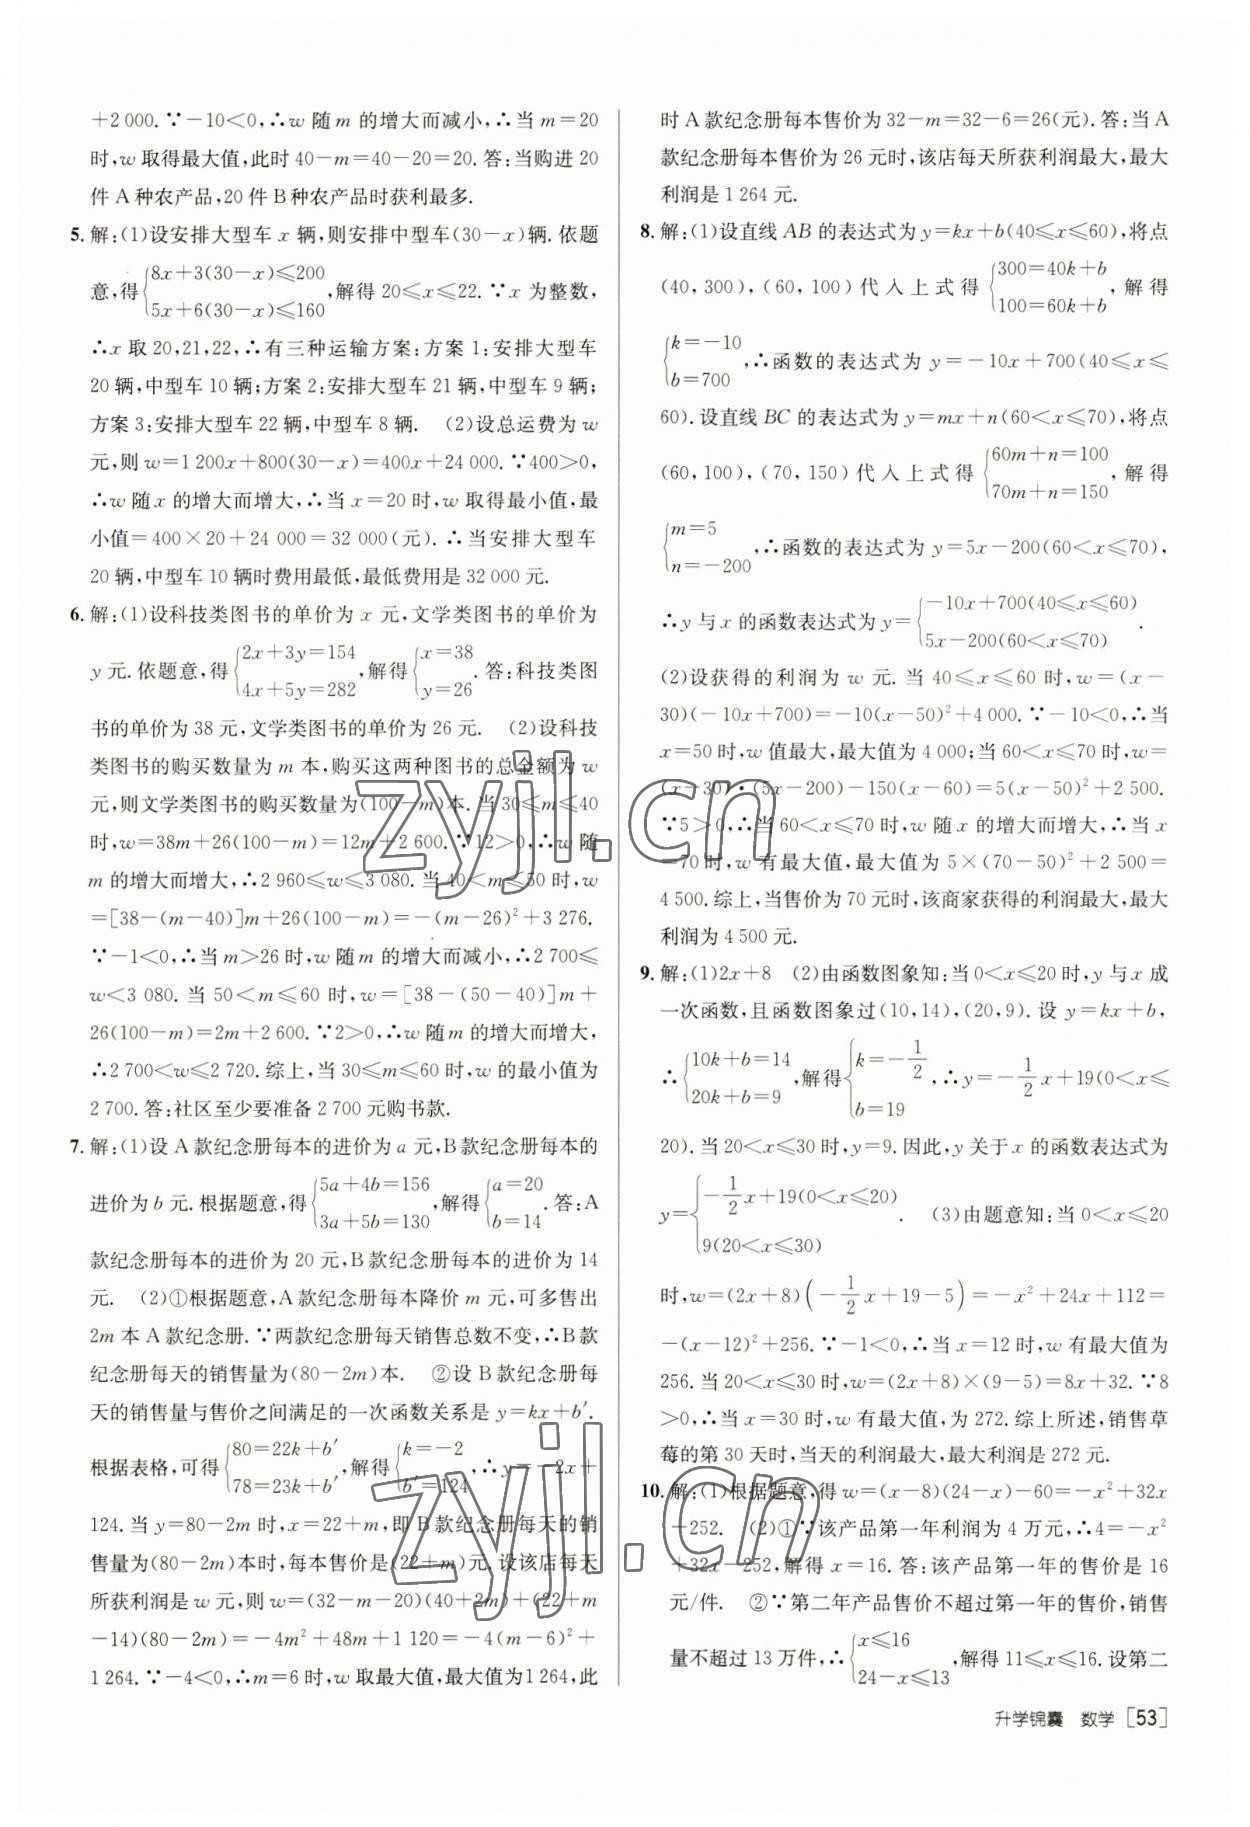 +2 000. ∵-10<0,∴w 随 m 的增大而减小,∴当 m=20
时,w 取得最大值,此时 40-m=40-20=20. 答:当购进 20
件 A 种农产品,20 件 B 种农产品时获利最多.
5. 解:(1)设安排大型车 x 辆,则安排中型车(30-x)辆. 依题
意,得{8x+3(30-x)≤200
5x+6(30-x)≤160,解得 20≤x≤22. ∵x 为整数,
∴x 取 20,21,22,∴有三种运输方案:方案 1:安排大型车
20 辆,中型车 10 辆;方案 2:安排大型车 21 辆,中型车 9 辆;
方案 3:安排大型车 22 辆,中型车 8 辆. (2)设总运费为 w
元,则 w=1 200x+800(30-x)=400x+24 000. ∵400>0,
∴w 随 x 的增大而增大,∴当 x=20 时,w 取得最小值,最
小值=400×20+24 000=32 000(元). ∴当安排大型车
20 辆,中型车 10 辆时费用最低,最低费用是 32 000 元.
6. 解:(1)设科技类图书的单价为 x 元,文学类图书的单价为
y 元. 依题意,得{2x+3y=154
4x+5y=282,解得{x=38
y=26. 答:科技类图
书的单价为 38 元,文学类图书的单价为 26 元. (2)设科技
类图书的购买数量为 m 本,购买这两种图书的总金额为 w
元,则文学类图书的购买数量为(100-m)本. 当 30≤m≤40
时,w=38m+26(100-m)=12m+2 600. ∵12>0,∴w 随
m 的增大而增大,∴2 960≤w≤3 080. 当 40<m≤50 时,w
=[38-(m-40)]m+26(100-m)=-(m-26)²+3 276.
∵-1<0,∴当 m>26 时,w 随 m 的增大而减小,∴2 700≤
w<3 080. 当 50<m≤60 时,w=[38-(50-40)]m+
26(100-m)=2m+2 600. ∵2>0,∴w 随 m 的增大而增大,
∴2 700<w≤2 720. 综上,当 30≤m≤60 时,w 的最小值为
2 700. 答:社区至少要准备 2 700 元购书款.
7. 解:(1)设 A 款纪念册每本的进价为 a 元,B 款纪念册每本的
进价为 b 元. 根据题意,得{5a+4b=156
3a+5b=130,解得{a=20
b=14. 答:A
款纪念册每本的进价为 20 元,B 款纪念册每本的进价为 14
元. (2)①根据题意,A 款纪念册每本降价 m 元,可多售出
2m 本 A 款纪念册. ∵两款纪念册每天销售总数不变,∴B 款
纪念册每天的销售量为(80-2m)本. ②设 B 款纪念册每
天的销售量与售价之间满足的一次函数关系是 y=kx+b′.
根据表格,可得{80=22k+b′
78=23k+b′,解得{k=-2
b′=124,∴y=-2x+
124. 当 y=80-2m 时,x=22+m,即 B 款纪念册每天的销
售量为(80-2m)本时,每本售价是(22+m)元. 设该店每天
所获利润是 w 元,则 w=(32-m-20)(40+2m)+(22+m
-14)(80-2m)=-4m²+48m+1 120=-4(m-6)²+
1 264. ∵-4<0,∴m=6 时,w 取最大值,最大值为 1 264,此
时 A 款纪念册每本售价为 32-m=32-6=26(元). 答:当 A
款纪念册每本售价为 26 元时,该店每天所获利润最大,最大
利润是 1 264 元.
8. 解:(1)设直线 AB 的表达式为 y=kx+b(40≤x≤60),将点
(40,300),(60,100)代入上式得{300=40k+b
100=60k+b,解得
{k=-10
b=700,∴函数的表达式为 y=-10x+700(40≤x≤
60). 设直线 BC 的表达式为 y=mx+n(60<x≤70),将点
(60,100),(70,150)代入上式得{60m+n=100
70m+n=150,解得
{m=5
n=-200,∴函数的表达式为 y=5x-200(60<x≤70),
∴y 与 x 的函数表达式为 y={-10x+700(40≤x≤60)
5x-200(60<x≤70).
(2)设获得的利润为 w 元. 当 40≤x≤60 时,w=(x-
30)(-10x+700)=-10(x-50)²+4 000. ∵-10<0,∴当
x=50 时,w 值最大,最大值为 4 000;当 60<x≤70 时,w=
(x-30)·(5x-200)-150(x-60)=5(x-50)²+2 500.
∵5>0,∴当 60<x≤70 时,w 随 x 的增大而增大,∴当 x
=70 时,w 有最大值,最大值为 5×(70-50)²+2 500=
4 500. 综上,当售价为 70 元时,该商家获得的利润最大,最大
利润为 4 500 元.
9. 解:(1)2x+8 (2)由函数图象知:当 0<x≤20 时,y 与 x 成
一次函数,且函数图象过(10,14),(20,9). 设 y=kx+b,
∴{10k+b=14
20k+b=9,解得{k=-1/2
b=19,∴y=-1/2x+19(0<x≤
20). 当 20<x≤30 时,y=9. 因此,y 关于 x 的函数表达式为
y={-1/2x+19(0<x≤20)
9(20<x≤30). (3)由题意知:当 0<x≤20
时,w=(2x+8)(-1/2x+19-5)=-x²+24x+112=
-(x-12)²+256. ∵-1<0,∴当 x=12 时,w 有最大值为
256. 当 20<x≤30 时,w=(2x+8)×(9-5)=8x+32. ∵8
>0,∴当 x=30 时,w 有最大值,为 272. 综上所述,销售草
莓的第 30 天时,当天的利润最大,最大利润是 272 元.
10. 解:(1)根据题意,得 w=(x-8)(24-x)-60=-x²+32x
-252. (2)①∵该产品第一年利润为 4 万元,∴4=-x²
+32x-252,解得 x=16. 答:该产品第一年的售价是 16
元/件. ②∵第二年产品售价不超过第一年的售价,销售
量不超过 13 万件,∴{x≤16
24-x≤13,解得 11≤x≤16. 设第二
升学锦囊 数学 [53]
zyjl.cn
zyjl.cn